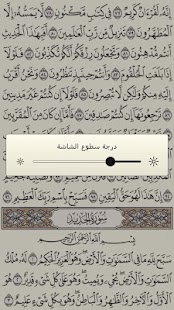 إِنَّهُۥ لَقُرْءَانٌ كَرِيمٌ ٧٧ فِى كِتَٰبٍ مَّكْنُونٍ ٧٨ لَّا يَمَسُّهُۥٓ إِلَّا
ٱلْمُطَهَّرُونَ ٧٩ تَنزِيلٌ مِّن رَّبِّ ٱلْعَٰلَمِينَ ٨٠ أَفَبِهَٰذَا ٱلْحَدِيثِ
أَنتُم مُّدْهِنُونَ ٨١ وَتَجْعَلُونَ رِزْقَكُمْ أَنَّكُمْ تُكَذِّبُونَ ٨٢ فَلَوْلَآ
إِذَا بَلَغَتِ ٱلْحُلْقُومَ ٨٣ وَأَنتُمْ حِينَئِذٍ تَنظُرُونَ ٨٤ وَنَحْنُ أَقْرَبُ
إِلَيْهِ مِنكُمْ وَلَٰكِن لَّا تُبْصِرُونَ ٨٥ فَلَوْلَآ إِن كُنتُمْ غَيْرَ مَدِينِينَ
٨٦ تَرْجِعُونَهَآ إِن كُنتُمْ صَٰدِقِينَ ٨٧ فَأَمَّآ إِن كَانَ مِنَ ٱلْمُقَرَّبِينَ
درجة سطوع الشاشة
إِنَّ هَٰذَا لَهُوَ حَقُّ ٱلْيَقِينِ ٩٥ فَسَبِّحْ بِٱسْمِ رَبِّكَ ٱلْعَظِيمِ ٩٦
سُورَةُ الحَدِيدِ
بِسْمِ ٱللَّهِ ٱلرَّحْمَٰنِ ٱلرَّحِيمِ
سَبَّحَ لِلَّهِ مَا فِى ٱلسَّمَٰوَٰتِ وَٱلْأَرْضِ وَهُوَ ٱلْعَزِيزُ ٱلْحَكِيمُ ١ لَهُۥ مُلْكُ
ٱلسَّمَٰوَٰتِ وَٱلْأَرْضِ يُحْىِۦ وَيُمِيتُ وَهُوَ عَلَىٰ كُلِّ شَىْءٍ قَدِيرٌ ٢ هُوَ
ٱلْأَوَّلُ وَٱلْءَاخِرُ وَٱلظَّٰهِرُ وَٱلْبَاطِنُ وَهُوَ بِكُلِّ شَىْءٍ عَلِيمٌ ٣